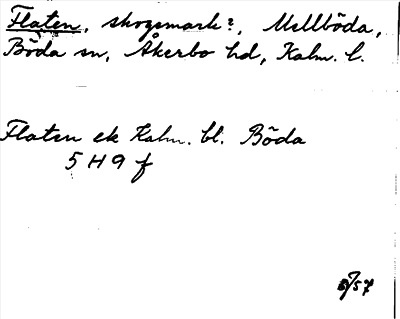 Flaten, skogsmark?, Mellböda,
Böda sn, Åkerbo hd, Kalm. l.
Flaten ek Kalm. bl. Böda
5 H 9 f
8/57